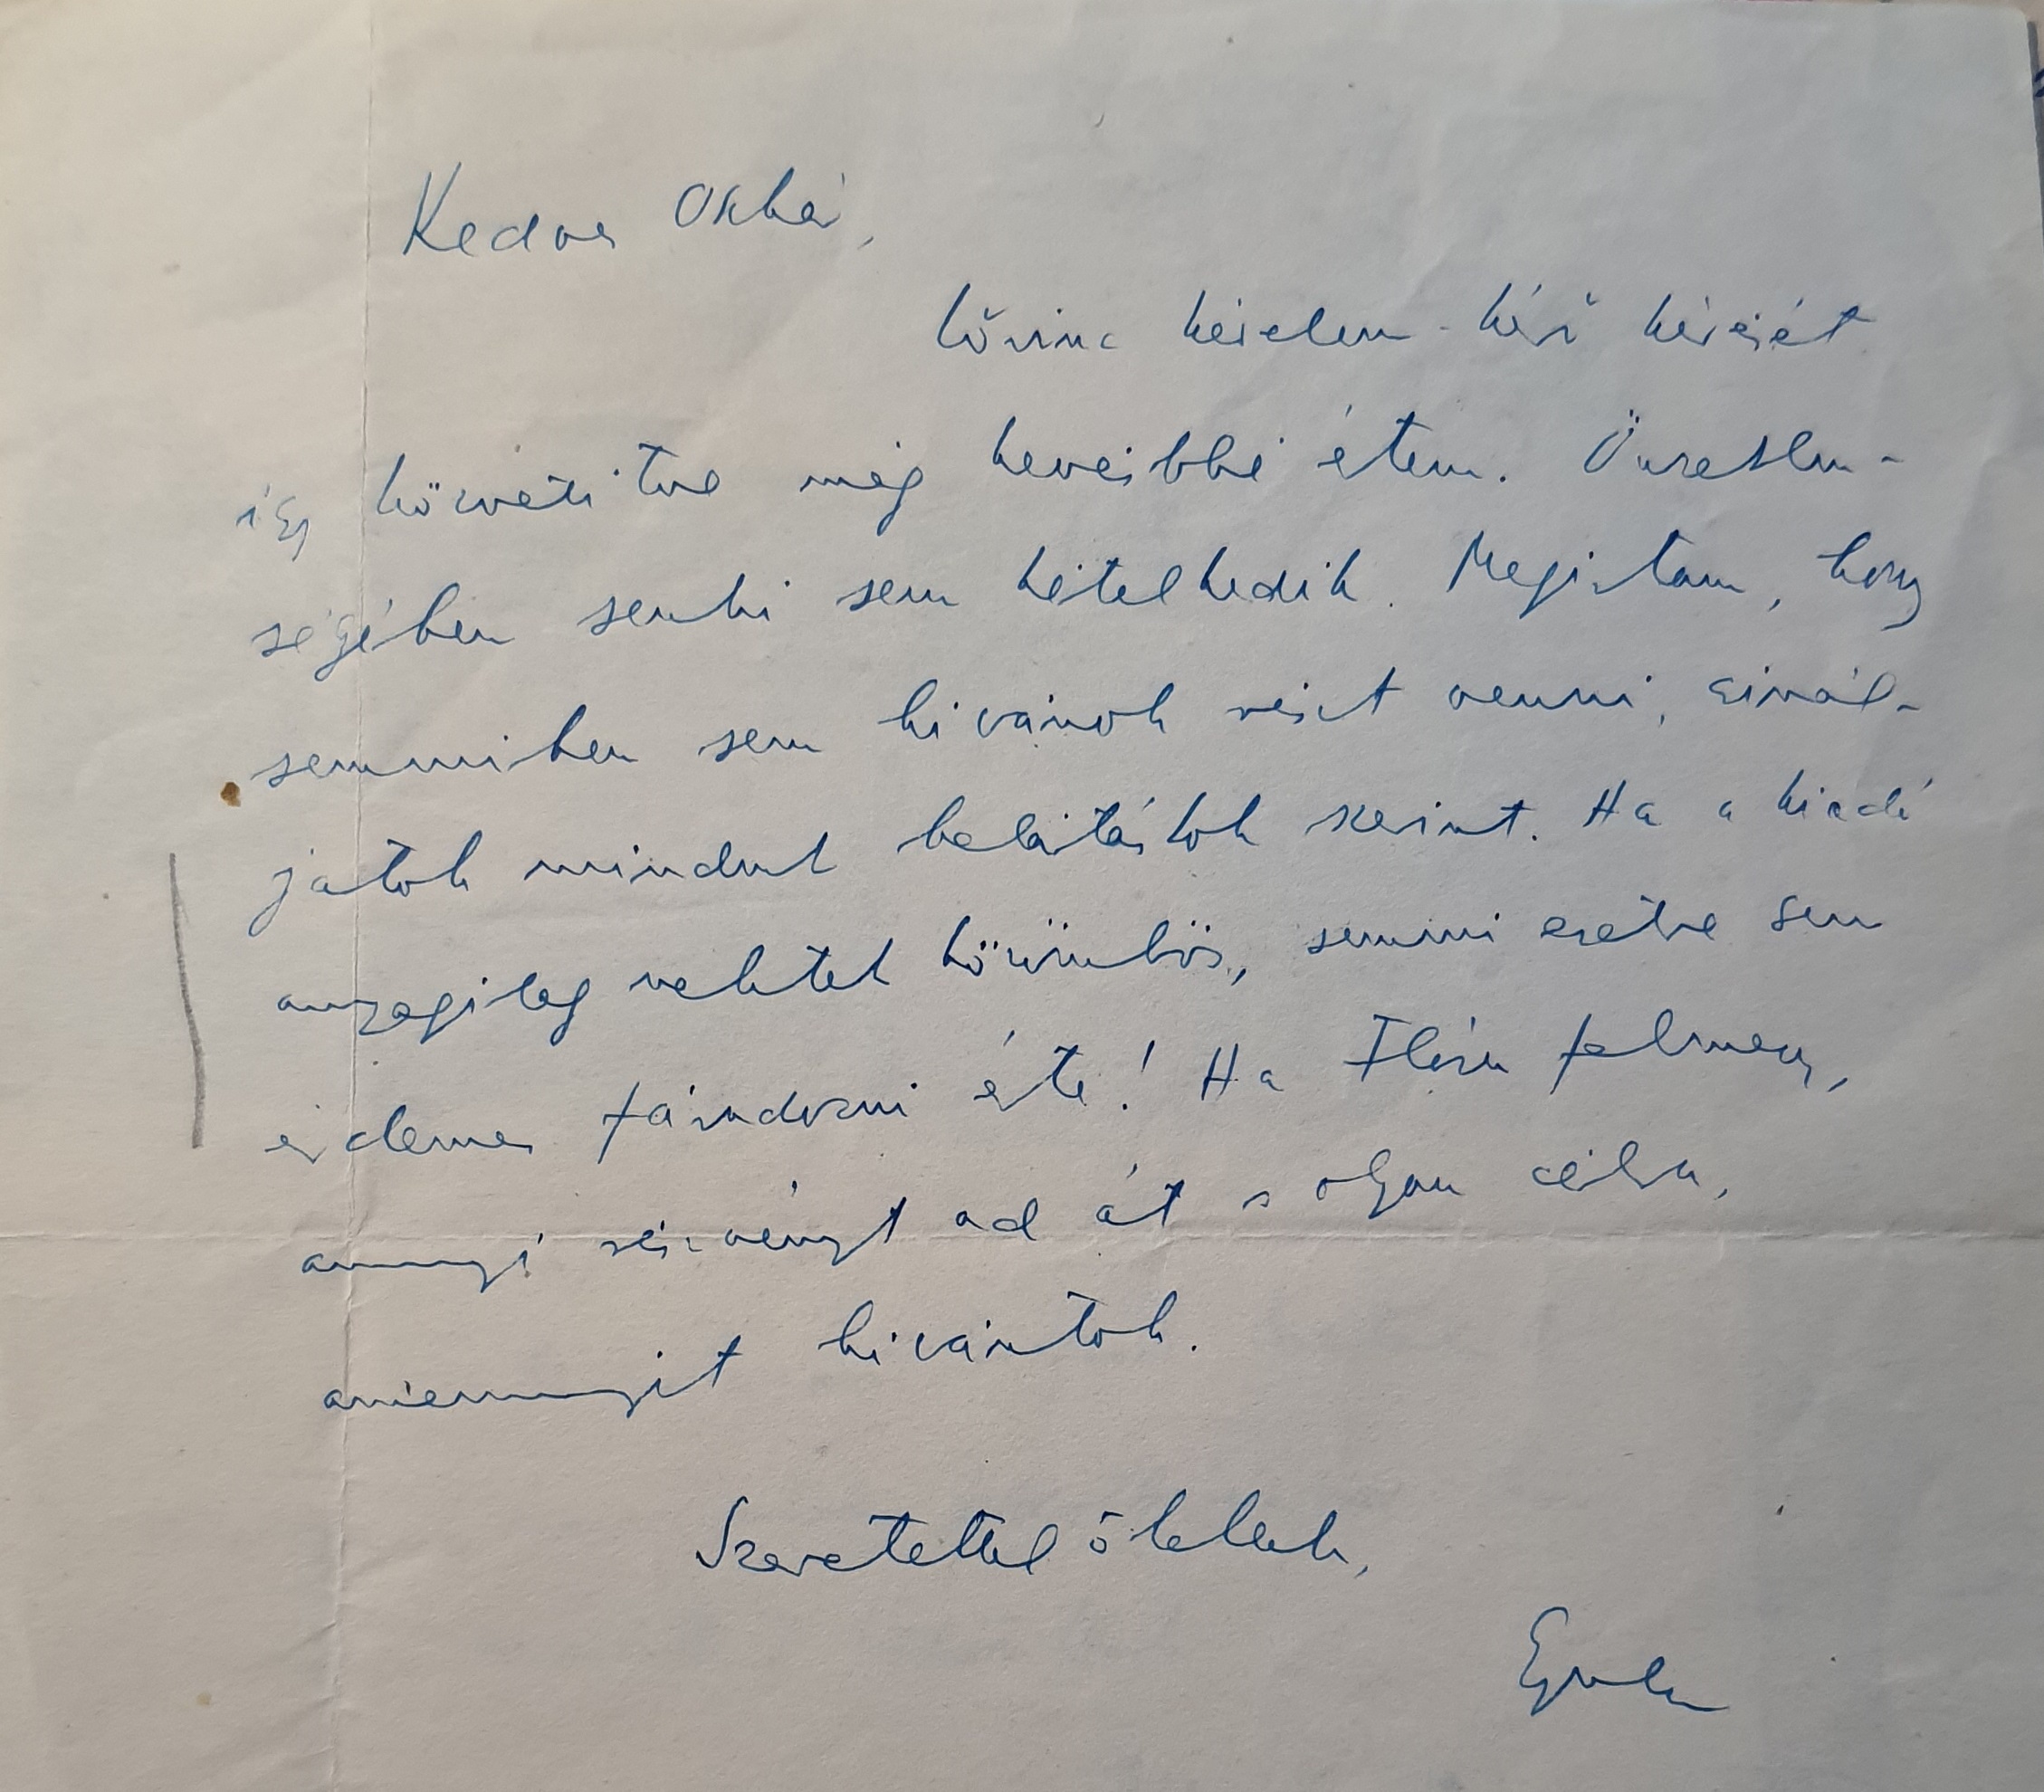 Kedves Oszkár,
Lőrinc kérelem-kérő kérését
így közvetítve még kevésbbé értem. Önzetlen-
ségében senki sem kételkedik. Megírtam, hogy
semmiben sem kívánok részt venni, csinál-
jatok mindent belátástok szerint. Ha a kiadó
anyagilag nektek közömbös, semmi esetre sem
érdemes fáradozni érte! Ha Flóra felmegy,
annyi részvényt ad át s olyan célra,
amennyit kívántok.
Szeretettel ölellek,
Gyula